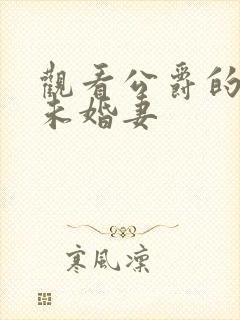 觀看公爵的
未婚妻
寒風凜